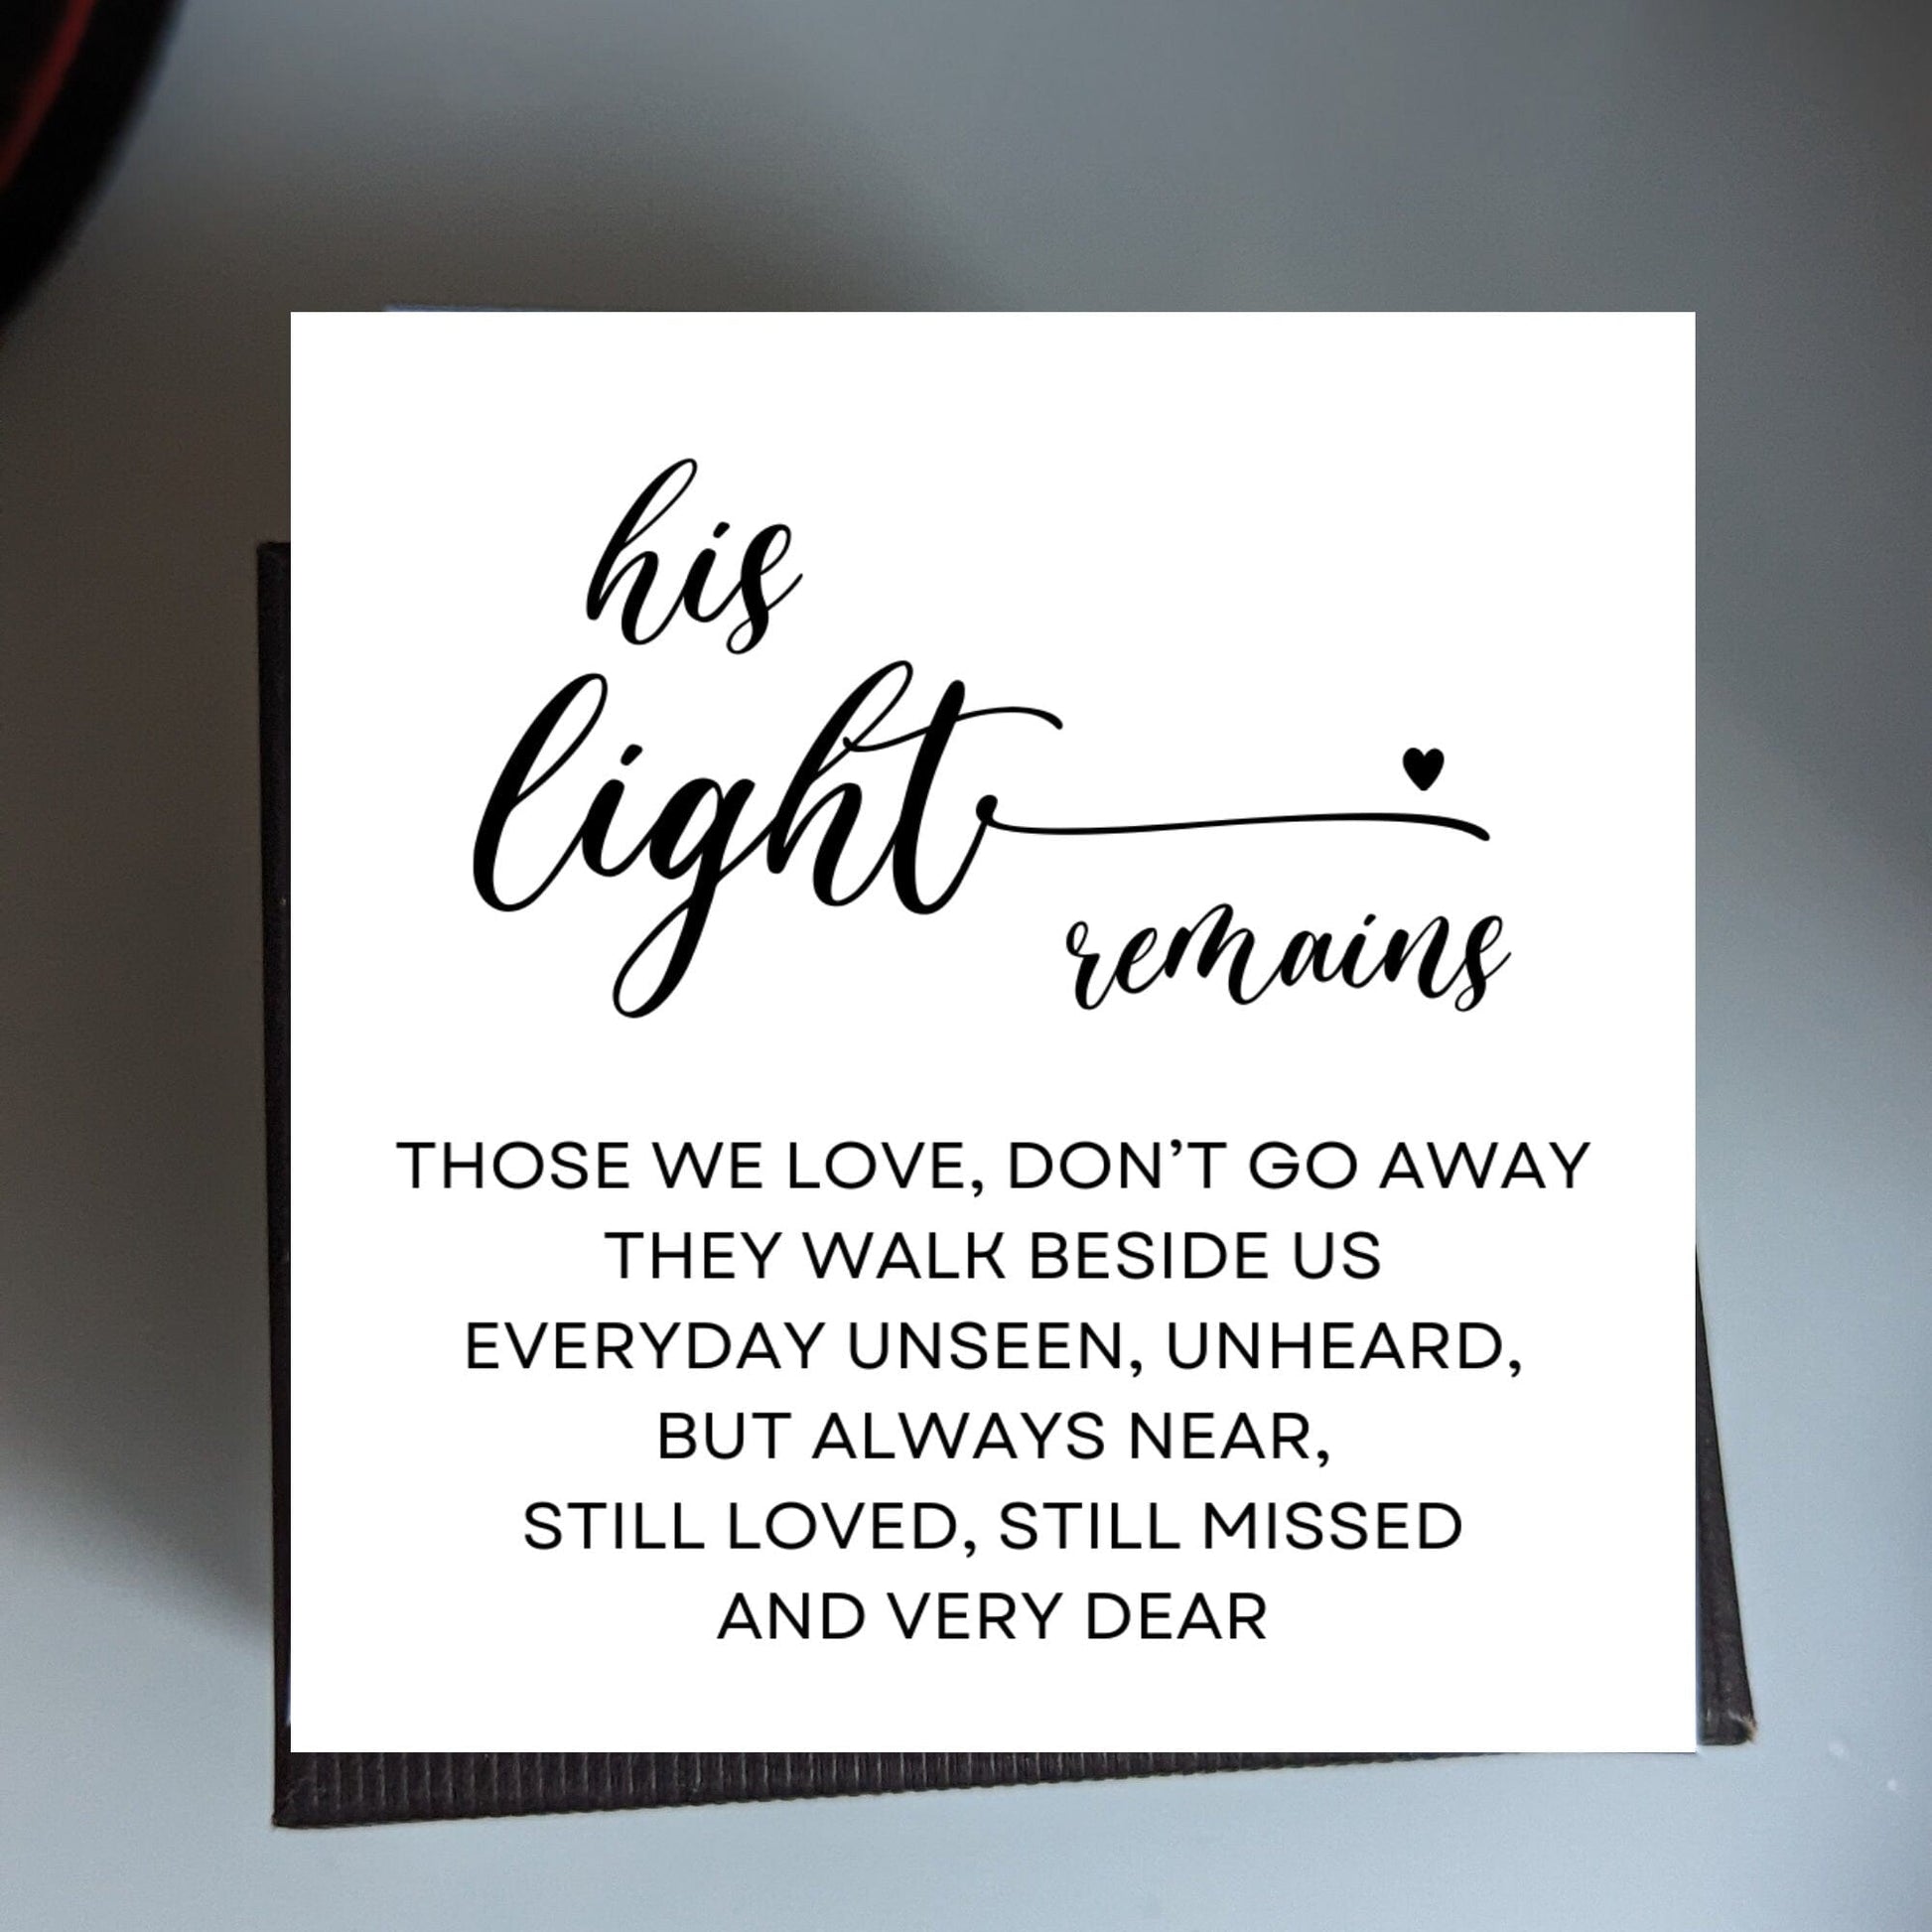 his
light
remains
THOSE WE LOVE, DON’T GO AWAY
THEY WALK BESIDE US
EVERYDAY UNSEEN, UNHEARD,
BUT ALWAYS NEAR,
STILL LOVED, STILL MISSED
AND VERY DEAR